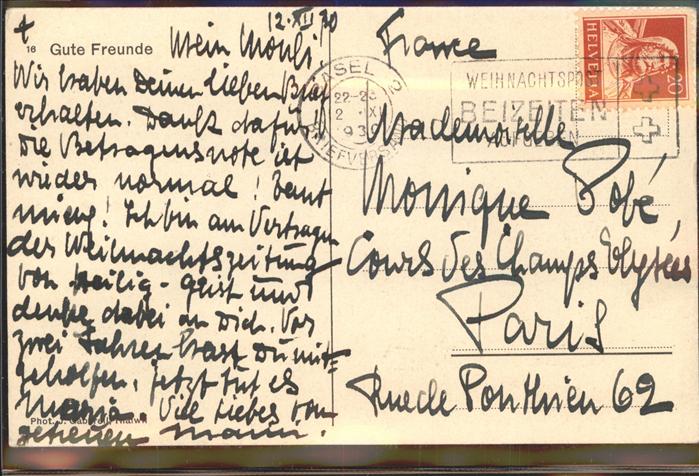 12. XII 30
16 Gute Freunde
Mein Mouli!
Wir haben Deinen lieben Brief
erhalten. Dank dafür!
Die Betragensnote ist
wieder normal!
Ich bin am Vertragen
der Weihnachtszeitung
von Heilig-geist und
denke dabei an Dich. Vor
zwei Jahren hast Du mit-
geholfen, jetzt tut es
Maria. Viel liebes vom
getreuen
Phot. J. Gaberell, Thalwil
France
Mademoiselle
Monique Pobé,
Cours des Champs Elysées
Paris
Rue de Ponthieu 62
HELVETIA
20
BASEL 2
22-23
BRIEFVERSAND
WEIHNACHTSPOST
BEIZEITEN
AUFGEBEN